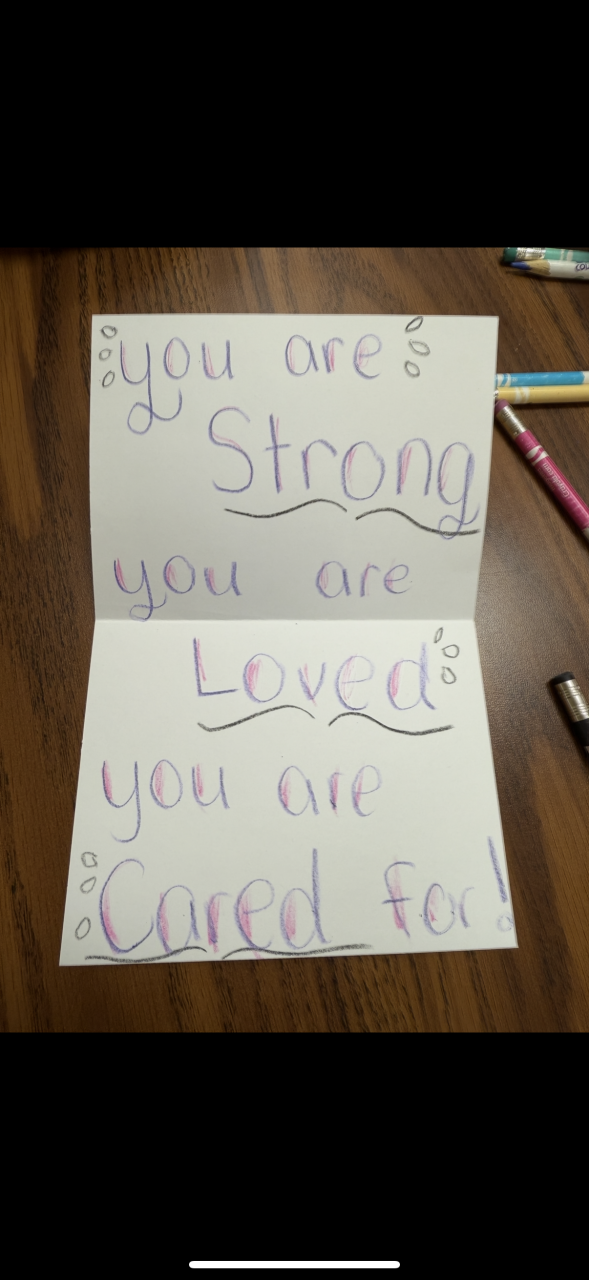 you are
Strong
you are
Loved
you are
Cared for!